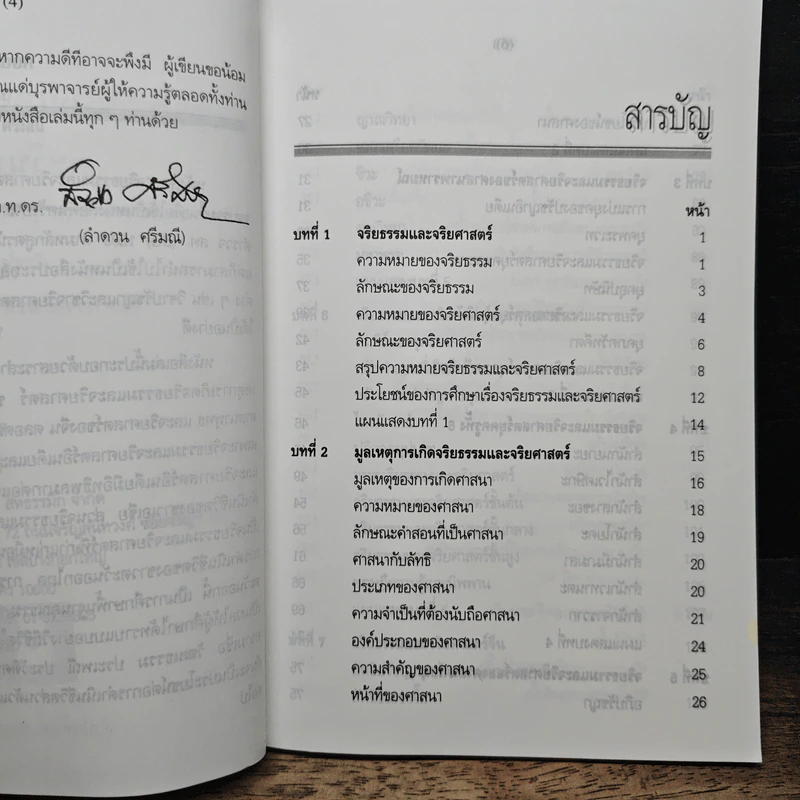 (4)
หากความดีที่อาจจะพึงมี ผู้เขียนขอน้อม
แด่บุรพาจารย์ผู้ให้ความรู้ตลอดทั้งท่าน
หนังสือเล่มนี้ทุก ๆ ท่านด้วย
.ท.ดร.
(ลำดวน ศรีมณี)
สารบัญ
หน้า
บทที่ 1 จริยธรรมและจริยศาสตร์ 1
ความหมายของจริยธรรม 1
ลักษณะของจริยธรรม 3
ความหมายของจริยศาสตร์ 4
ลักษณะของจริยศาสตร์ 6
สรุปความหมายจริยธรรมและจริยศาสตร์ 8
ประโยชน์ของการศึกษาเรื่องจริยธรรมและจริยศาสตร์ 12
แผนแสดงบทที่ 1 14
บทที่ 2 มูลเหตุการเกิดจริยธรรมและจริยศาสตร์ 15
มูลเหตุของการเกิดศาสนา 16
ความหมายของศาสนา 18
ลักษณะคำสอนที่เป็นศาสนา 19
ศาสนากับลัทธิ 20
ประเภทของศาสนา 20
ความจำเป็นที่ต้องนับถือศาสนา 21
องค์ประกอบของศาสนา 24
ความสำคัญของศาสนา 25
หน้าที่ของศาสนา 26